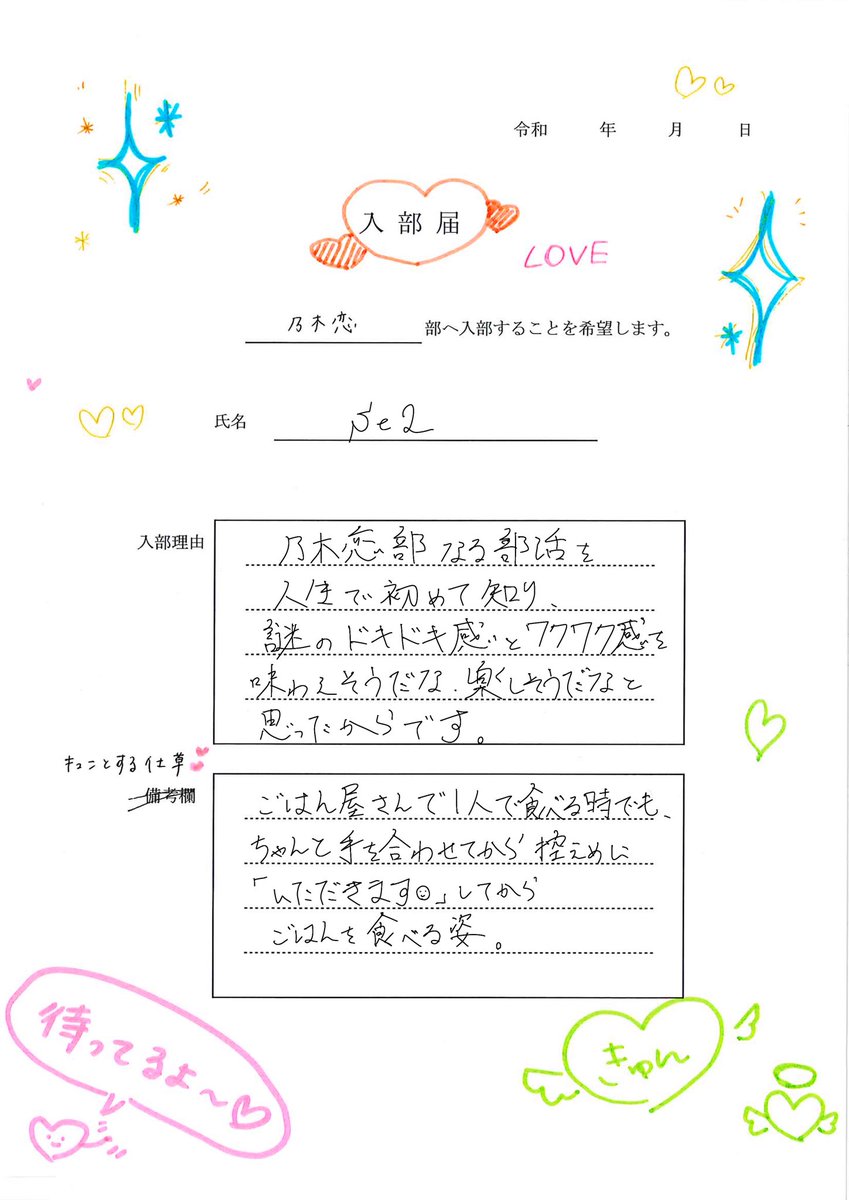 令和　年　月　日
入部届
LOVE
乃木恋 部へ入部することを希望します。
氏名
入部理由
乃木恋部なる部活を
人生で初めて知り、
謎のドキドキ感とワクワク感を
味わえそうだな、楽しそうだなと
思ったからです。
キュンとする仕草
備考欄
ごはん屋さんで1人で食べる時でも、
ちゃんと手を合わせてから控えめに
「いただきます☺」してから
ごはんを食べる姿。
待ってるよ〜♡
きゅん